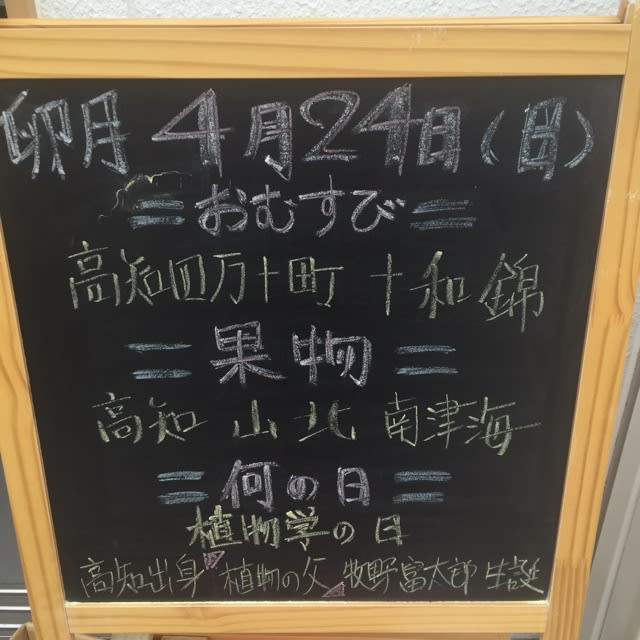 卯月 4月24日(日)
=おむすび=
高知四万十町 十和錦
=果物=
高知 山北 南津海
=何の日=
植物学の日
高知出身"植物の父"牧野富太郎 生誕